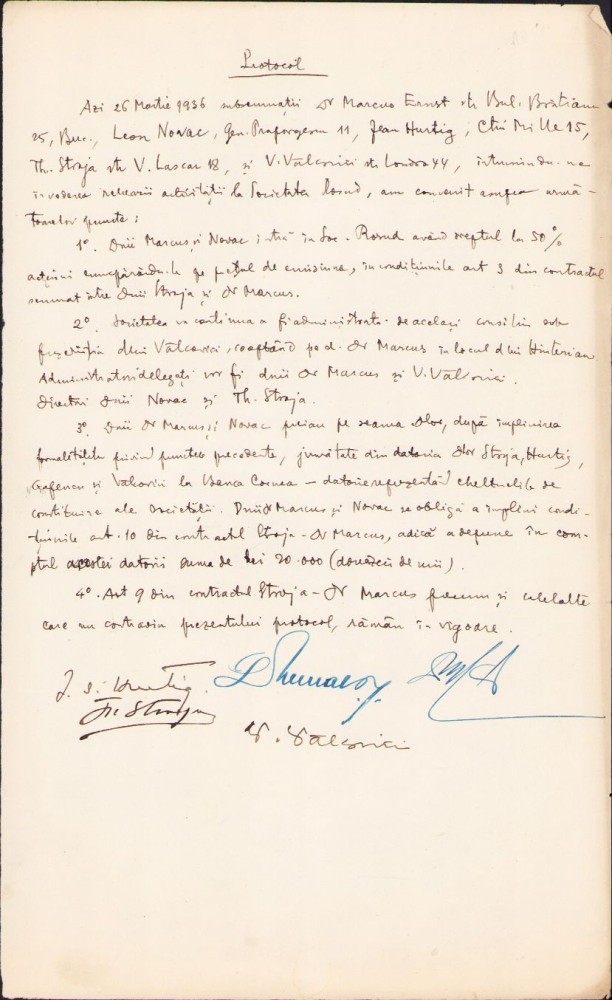 Protocol
Azi 26 Martie 1936 subsemnații Dr Marcus Ernst str Bul. Brătianu
25, Buc., Leon Novac, Gen. Praporgescu 11, Jean Hurtig, Ctin Mille 15,
Th. Stroja str V. Lascar 18, și V. Vâlcovici str Londra 44, întrunindu-ne
în vederea reluării activității la Societatea Rosud, am convenit asupra urmă-
toarelor puncte:
1º. Dnii Marcus și Novac intră în Soc. Rosud având dreptul la 50%
acțiuni cumpărându-le pe prețul de emisiune, în condițiunile art 3 din contractul
semnat între Dnii Stroja și Dr Marcus.
2º. Societatea va continua a fi administrată de același consiliu sub
președinția dlui Vâlcovici, cooptând pe d. Dr Marcus în locul dlui
Administratori delegați vor fi dnii Dr Marcus și V. Vâlcovici.
Directori Dnii Novac și Th. Stroja.
3º. Dnii Dr Marcus și Novac preiau pe seama Dlor, după împlinirea
formalităților privind punctele precedente, jumătate din datoria Dlor Stroja, Hurtig,
Gafencu și Vâlcovici la Banca Cornea – datorie reprezentând cheltuelile de
constituire ale societății. Dnii Dr Marcus și Novac se obligă a împlini condi-
țiunile art. 10 din contractul Stroja - Dr Marcus, adică a depune în con-
tul acestei datorii suma de lei 20.000 (douăzeci de mii).
4º. Art 9 din contractul Stroja - Dr Marcus precum și celelalte
care nu contrazic prezentului protocol, rămân în vigoare.
J. S. Hurtig
Th. Stroja
V. Vâlcovici